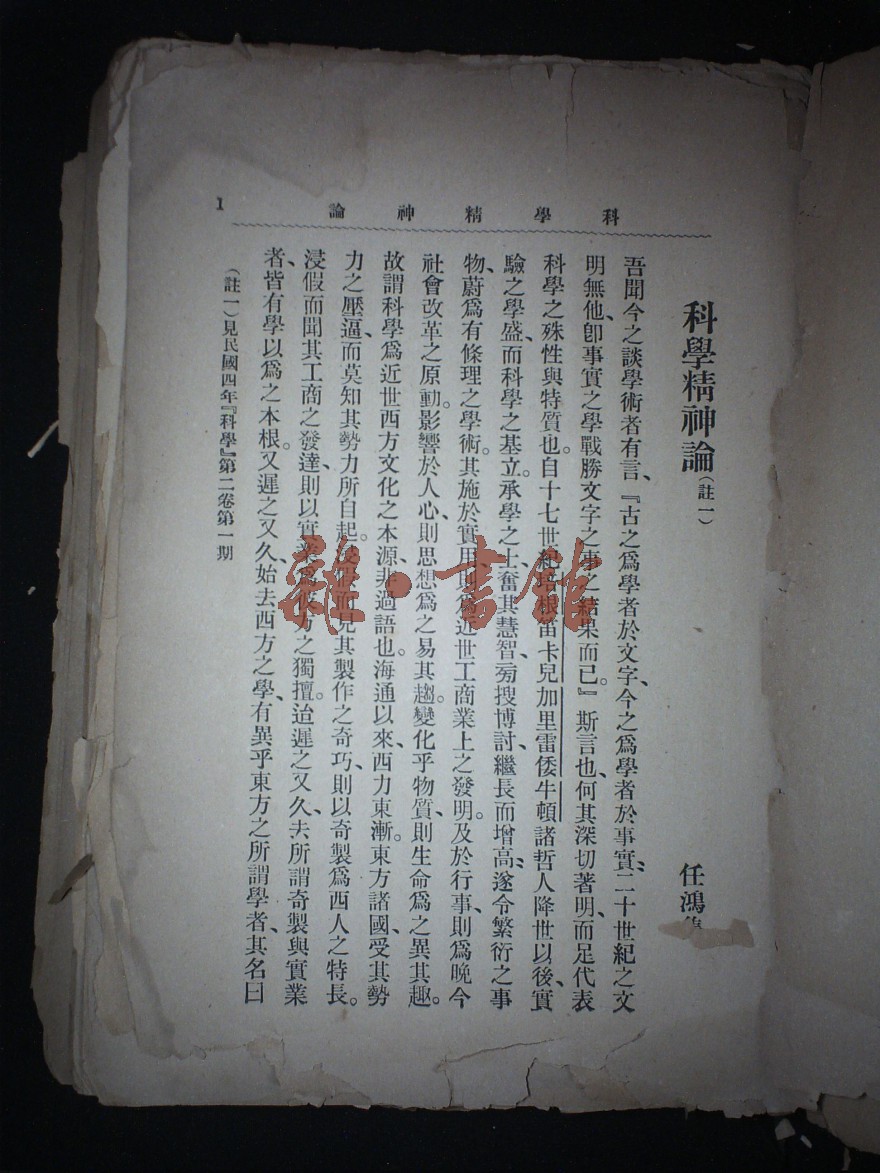 科學精神論
1
科學精神論(註一)
任鴻
吾聞今之談學術者有言、『古之爲學者於文字、今之爲學者於事實、二十世紀之文
明無他、卽事實之學戰勝文字之事之結果而已。』斯言也、何其深切著明、而足代表
科學之殊性與特質也。自十七世紀培根笛卡兒加里雷倭牛頓諸哲人降世以後、實
驗之學盛、而科學之基立。承學之士、奮其慧智、旁搜博討、繼長而增高、遂令繁衍之事
物、蔚爲有條理之學術。其施於實用、則爲近世工商業上之發明。及於行事、則爲晚今
社會改革之原動。影響於人心、則思想爲之易其趨。變化乎物質、則生命爲之異其趣。
故謂科學爲近世西方文化之本源、非過語也。海通以來、西力東漸。東方諸國、受其勢
力之壓逼、而莫知其勢力所自起。浸假而見其製作之奇巧、則以奇製爲西人之特長。
浸假而聞其工商之發達、則以實業爲彼方之獨擅。迨遲之又久、夫所謂奇製與實業
者、皆有學以爲之本根。又遲之又久、始去西方之學、有異乎東方之所謂學者、其名曰
(註一)見民國四年『科學』第二卷第一期
雜·書館